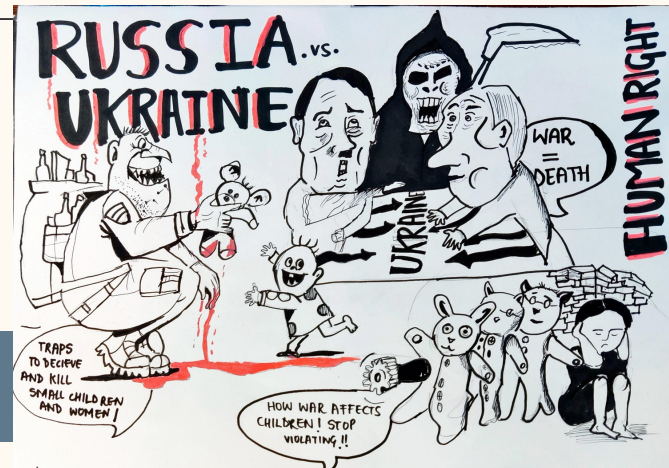 RUSSIA.vs.
UKRAINE
HUMAN RIGHT
WAR
=
DEATH
UKRAINE
TRAPS
TO DECIEVE
AND KILL
SMALL CHILDREN
AND WOMEN!
HOW WAR AFFECTS
CHILDREN! STOP
VIOLATING!!